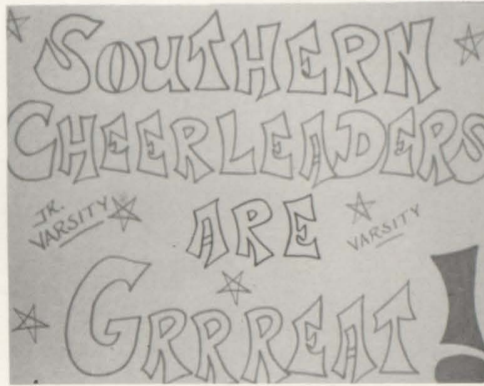 SOUTHERN
CHEERLEADERS
ARE
JR.
VARSITY
VARSITY
GRRREAT!